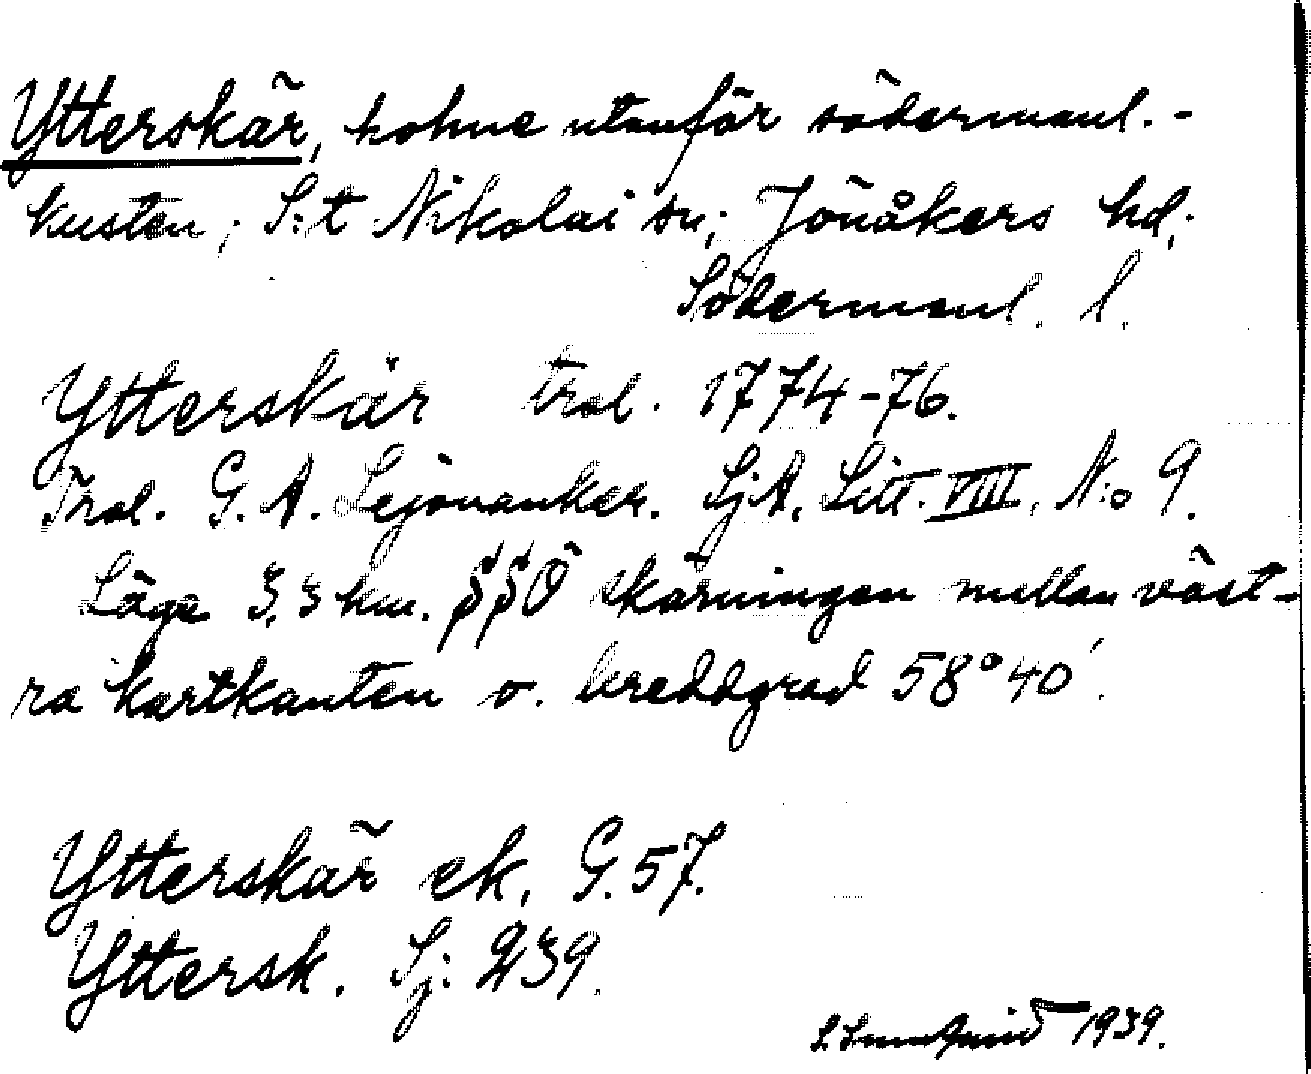 Ytterskär, holme utanför södermanl.-
kusten; S:t Nikolai sn; Jönåkers hd;
Södermanl. l.
Ytterskär trol. 1774-76.
Trol. G. A. Lejonanker. SjA. Litt. VIII, N:o 9.
Läge 3,3 km. SSÖ skärningen mellan väst-
ra kartkanten o. breddgrad 58° 40'.
Ytterskär ek. G. 57.
Yttersk. Sj: 239.
1939.